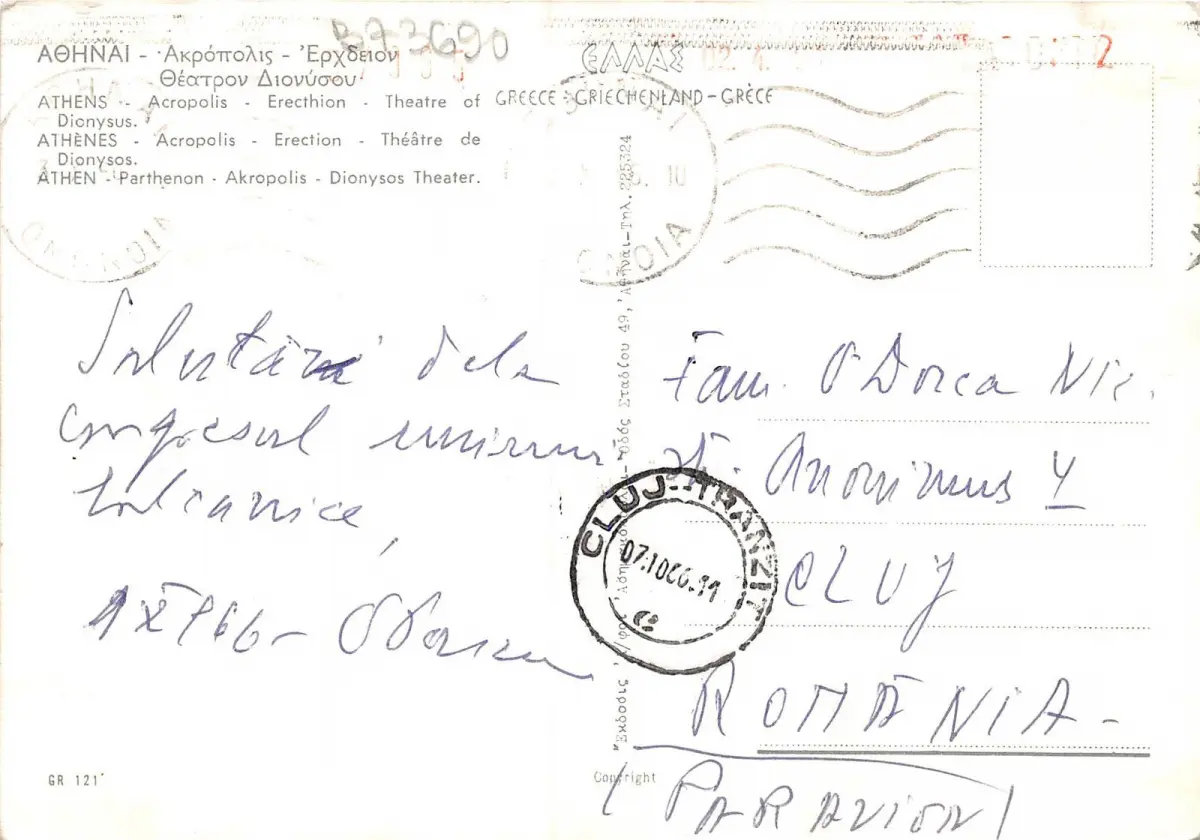 B73690
ΑΘΗΝΑΙ - Ἀκρόπολις - Ἐρχδειον
Θέατρον Διονύσου
ATHENS - Acropolis - Erecthion - Theatre of
Dionysus.
ATHÈNES - Acropolis - Erection - Théâtre de
Dionysos.
ATHEN - Parthenon - Akropolis - Dionysos Theater.
ΕΛΛΑΣ
GREECE - GRIECHENLAND - GRÈCE
Salutări dela
congresul uniunii
balcanice,
1 X 966 -
Fam. Odorca Nic.
str. Anonimus 4
CLUJ
ROMÂNIA -
(PAR AVION)
CLUJ-TRANZIT
07.10.66
GR 121
Copyright